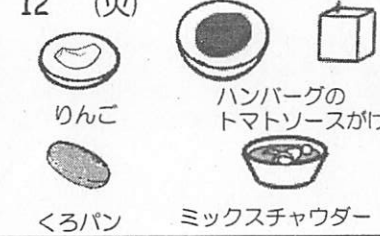 12 (火)
りんご
ハンバーグの
トマトソースがけ
くろパン
ミックスチャウダー